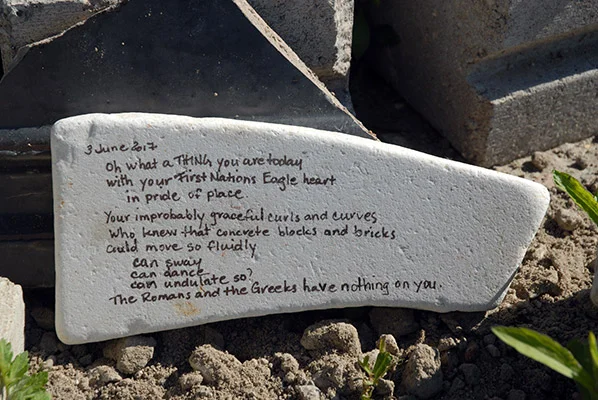 3 June 2017
Oh what a THING you are today
with your First Nations Eagle heart
in pride of place.
Your improbably graceful curls and curves
Who knew that concrete blocks and bricks
Could move so fluidly
can sway
can dance
can undulate so?
The Romans and the Greeks have nothing on you.